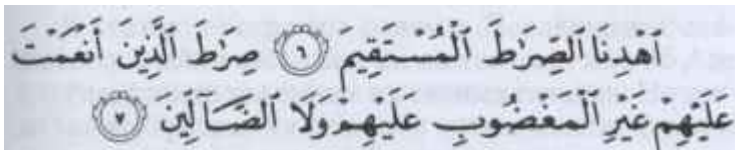 ٱهْدِنَا ٱلصِّرَٰطَ ٱلْمُسْتَقِيمَ ۝٦ صِرَٰطَ ٱلَّذِينَ أَنْعَمْتَ
عَلَيْهِمْ غَيْرِ ٱلْمَغْضُوبِ عَلَيْهِمْ وَلَا ٱلضَّآلِّينَ ۝٧